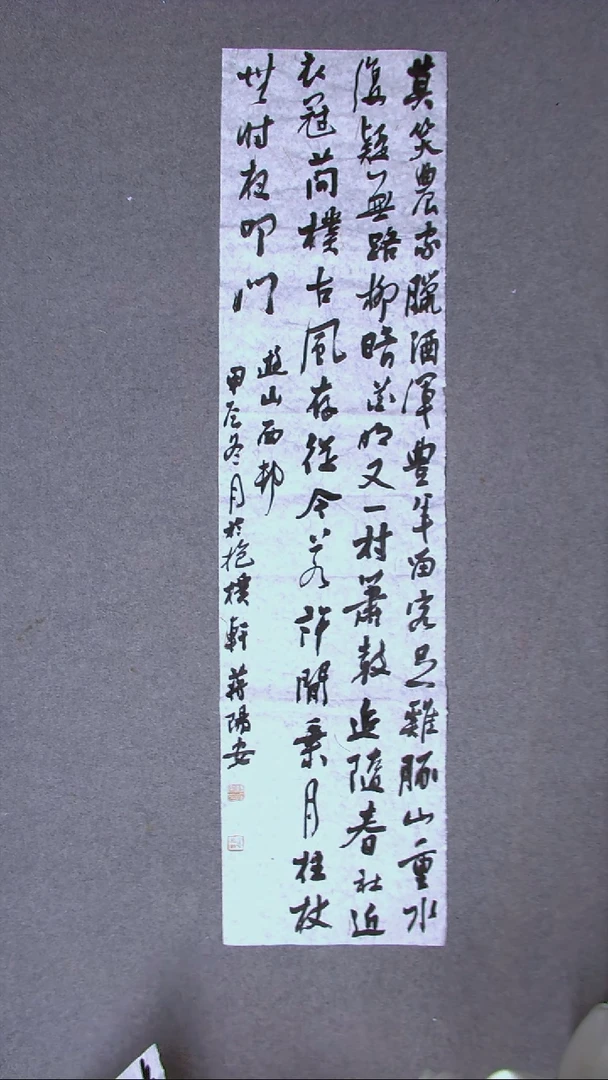 莫笑農家臘酒渾豊年留客足雞豚山重水
復疑無路柳暗花明又一村簫鼓追隨春社近
衣冠茼樸古風存從今若許閒乗月柱杖
無时夜叩门
遊山西邨
甲辰冬月於抱樸軒蒋陽安